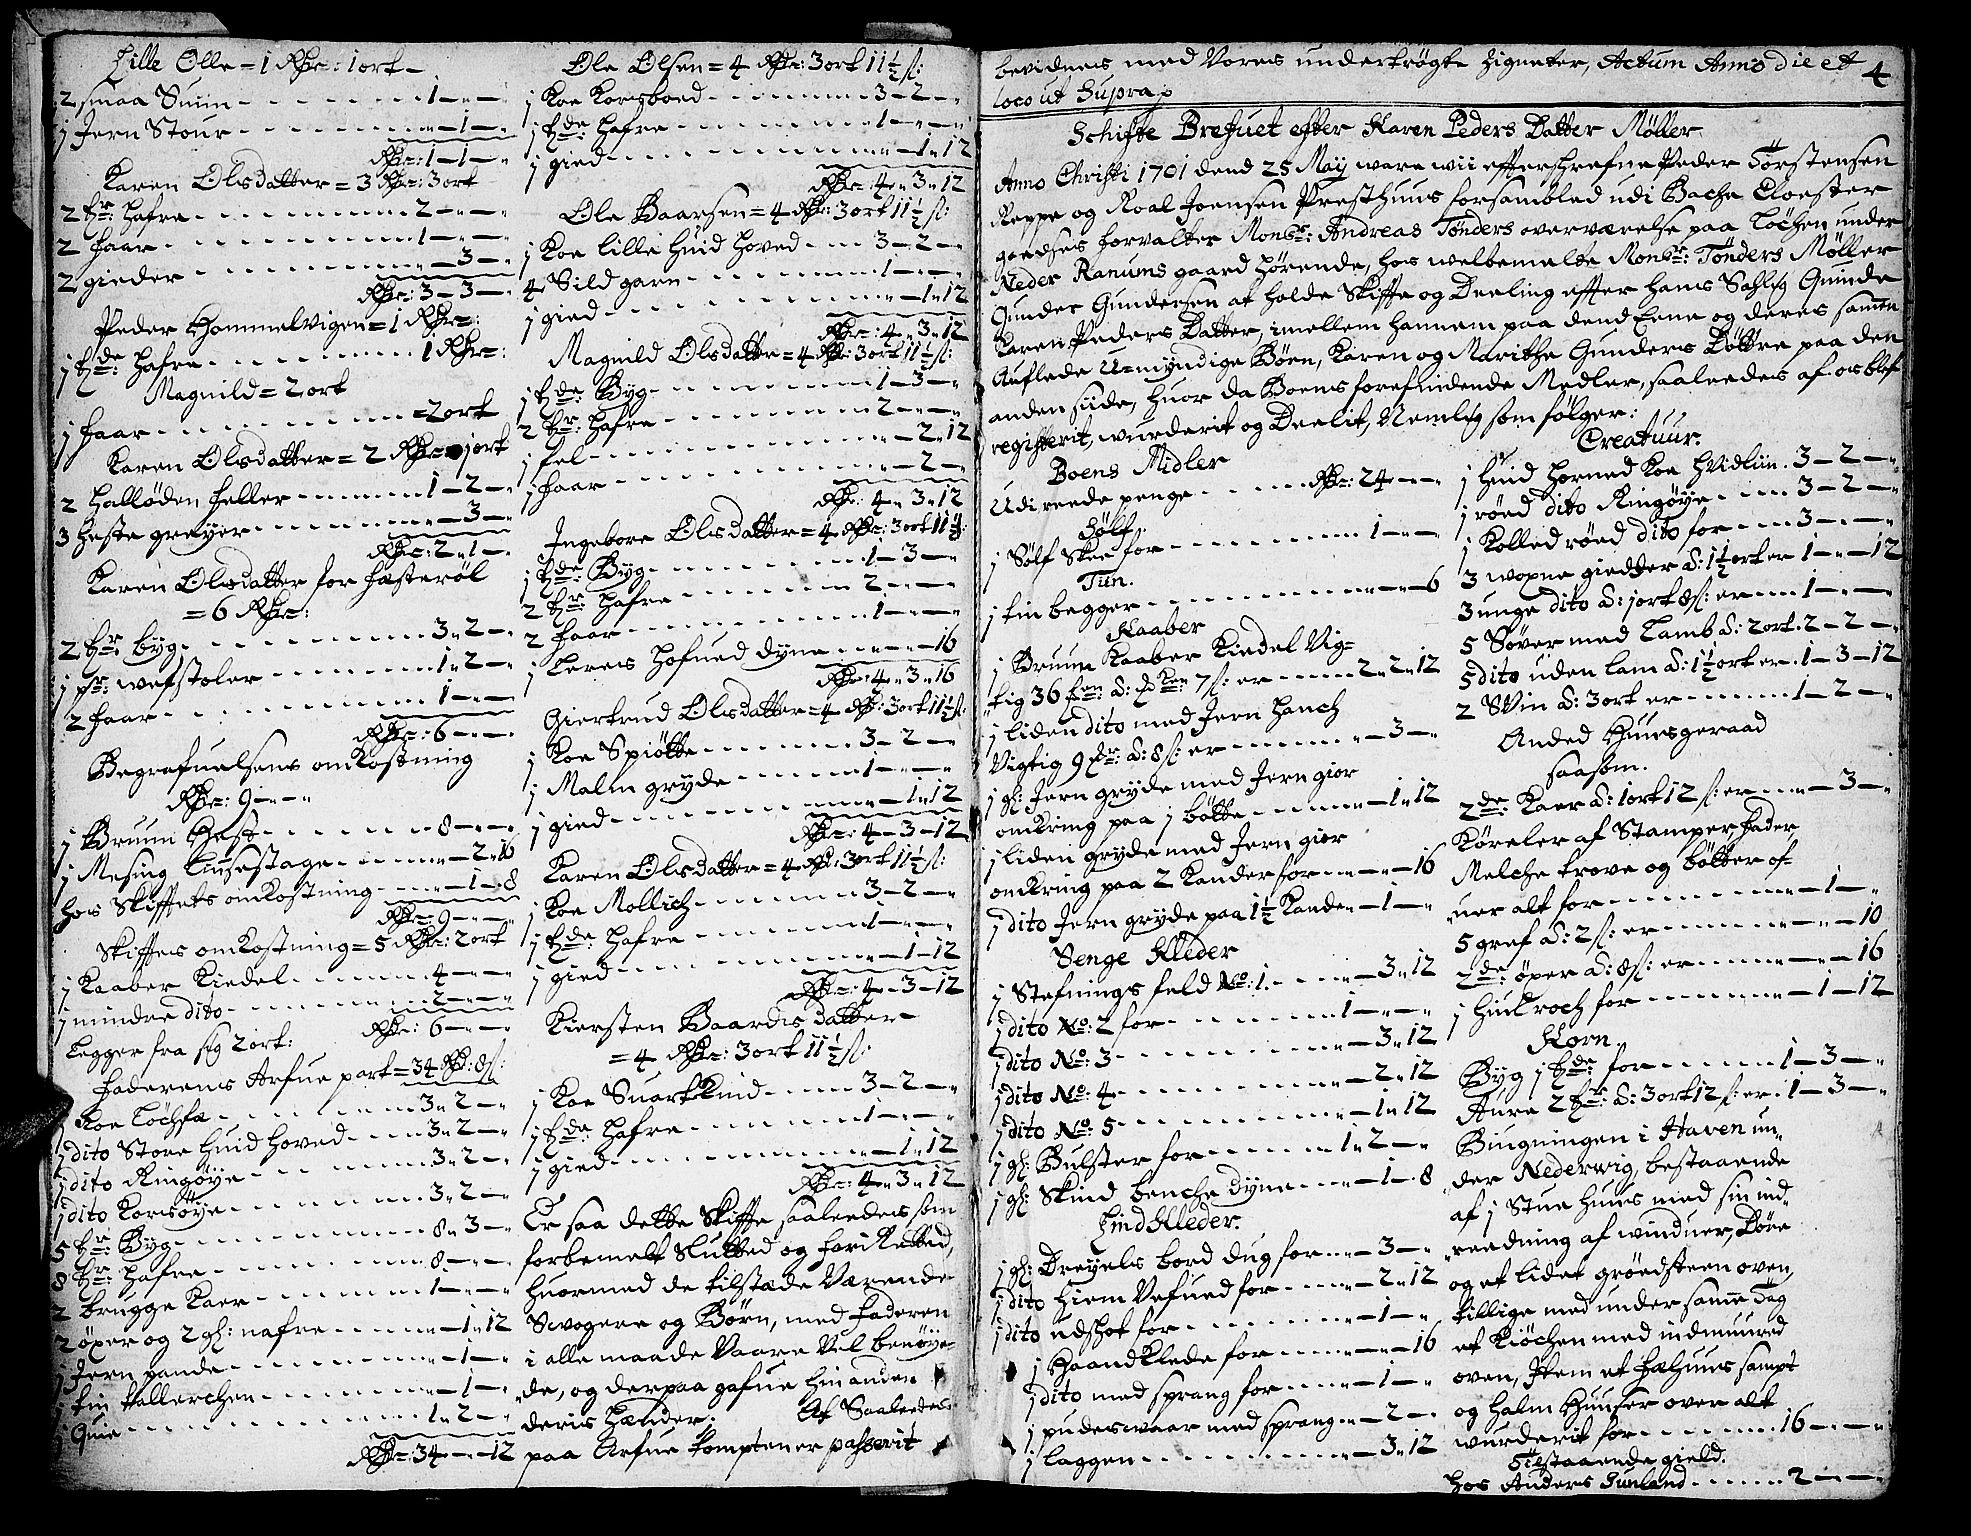 Lille Olle = 1 Rdr: 1 ort
2 smaa Suiin 1 - -
j Jern Stour - 1 -
Rdr: 1 - 1 -
Karen Olsdatter = 3 Rdr: 3 ort
2 tr: hafre 2 - -
2 faar 1 - -
2 gieder - 3 -
Rdr: 3 - 3 -
Peder Hommelvigen = 1 Rdr:
j tde: hafre 1 Rdr:
Magnild = 2 ort
j faar = 2 ort
Karen Olsdatter = 2 Rdr j ort
2 halløden feller 1 - 2 -
3 heste greyer - 3 -
Rdr: 2 - 1 -
Karen Olsdatter for festerøl
= 6 Rdr:
2 tr: byg 3 - 2 -
j pr: wefstoler 1 - 2 -
2 faar 1 - -
Rdr: 6 - -
Begrafuelsens omkostning
Rdr: 9 - -
j Bruun Hest 8 - -
j Mesing liusestage - 2 - 16
hos Skifftets omkostning - 1 - 8
Rdr: 9 - -
Skifftes omkostning = 5 Rdr: 2 ort
j Kaaber Kiedel 4 - -
j mindre dito 2 - -
Rdr: 6 - -
legger fra sig 2 ort:
Faderens Arfue part = 34 Rd: 8 s:
j Koe Løchfæ 3 - 2 -
j dito Store huid hoved 3 - 2 -
j dito Ringøye 3 - 2 -
j dito Korsøye 3 - 2 -
5 tr: Byg 8 - 3 -
8 tr: hafre 8 - -
2 brugge Kaer 1 - -
2 øxer og 2 gl: nafre - 1 - 12
j Jern pande - 1 -
j tin tallerchen - 1 -
j Quie 1 - 2 -
Rdr: 34 - - 12
Ole Olsen = 4 Rdr: 3 ort 11½ s:
j Koe Korsboed 3 - 2 -
j tde: hafre 1 - -
j gied - 1 - 12
Rdr: 4 - 3 - 12
Ole Baarsen = 4 Rdr: 3 ort 11½ s:
j Koe lille huid hoved 3 - 2 -
4 Sild garn 1 - -
j gied - 1 - 12
Rdr: 4 - 3 - 12
Magnild Olsdatter = 4 Rdr: 3 ort 11½ s:
j tde: Byg 1 - 3 -
2 tr: hafre 2 - -
j fel - 2 - 12
j faar - 2 -
Rdr: 4 - 3 - 12
Ingebore Olsdatter = 4 Rdr: 3 ort 11½
j tde: Byg 1 - 3 -
2 tr: hafre 2 - -
2 faar 1 - -
j lerets hofued dyne - - 16
Rdr: 4 - 3 - 16
Giertrud Olsdatter = 4 Rdr: 3 ort 11½ s:
j Koe Spiøtte 3 - 2 -
j Malm gryde 1 - -
j gied - 1 - 12
Rdr: 4 - 3 - 12
Karen Olsdatter = 4 Rdr: 3 ort 11½ s:
j Koe Mollich 3 - 2 -
j tde: hafre 1 - -
j gied - 1 - 12
Rdr: 4 - 3 - 12
Kiersten Baardsdatter
= 4 Rdr: 3 ort 11½ s:
j Koe Suartkind 3 - 2 -
j tde: hafre 1 - -
j gied - 1 - 12
Rdr: 4 - 3 - 12
Er saa dette Skiffte saaleedes som
forbemelt Slutted og forrettted,
huormed de tilstæde Værende
Svogere og Børn, med Faderen
i alle maade Vaare Vel benøye-
de, og derpaa gafue hin anden
deris hænder. At Saaleedes
paa Arfue tompten er passerit
bevidnes med Vores undertrøgte Zigneter, Actum Anno die et
loco ut Supra
4
Schifte Brefuet efter Karen Peders Datter Møller
Anno Christi 1701 dend 25 Maij ware wii effterskrefne Peder Torstensen
Reppe og Roal Joensen Presthuus forsambled udi Bache Cloester
goedses forvalter Monsr: Andreas Tønders overværelse paa Løchen under
Neder Ranums gaard hørende, hos welbemelte Monsr: Tønders Møller
Gunder Gundersen at holde Skiffte og Deeling effter hans Sahlig Quinde
Karen Peders Datter, imellem hannem paa dend Eene og deres samen
Auflede U-myndige Børn, Karen og Marithe Gunders Døttre paa den
anden siide, huor da Boens forefindende Medler, saaleedes af os blef
registerit, wurderit og Deelit, Nemlig som følger:
Boens Midler
Udi reede penge Rdr: 24 - -
Sølf.
j Sølf Skee for 1 - -
Tin.
j tin begger - - 6
Kaaber
j Bruun Kaaber Kiedel Vig-
tig 36 mr: à: 7 s: er 2 - 2 - 12
j liden dito med Jern hanch
Vigtig 9 mr: à: 8 s: er - 3 -
j gl: Jern gryde med Jern gior
omkring paa j bøtte - 1 - 12
j liden gryde med Jern gior
omkring paa 2 Kander for - - 16
j dito Jern gryde paa 1½ Kande - 1 -
Senge Kleder
j Stefnings feld No: 1 - 3 - 12
j dito No: 2 for 1 - -
j dito No: 3 - 3 - 12
j dito No: 4 - 2 - 12
j dito No: 5 - 1 - 12
j gl: Bulster for 1 - 2 -
j gl: Skind benche dyne - 1 - 8
Lindkleder.
j gl: Dreyels bord dug for - 3 -
j dito hiem Vefued for - 2 - 12
j dito udshot for - 1 -
j Haandklede for - - 16
j dito med sprang for - 1 -
j pudeswaar med sprang - 2 -
j laggen - 3 - 12
Creatuur.
j huid horned Koe Hvidliin 3 - 2 -
j røed dito Ringøye 3 - 2 -
j Kolled røed dito for 3 - -
3 woxne giedder à: 1½ ort er 1 - - 12
3 unge dito à: j ort 8 s: er 1 - -
5 Søver med Lamb à: 2 ort 2 - 2 -
5 dito uden lam à: 1½ ort er 1 - 3 - 12
2 Swin à: 3 ort er 1 - 2 -
Anded Huusgeraad
saasom.
2de Kaer à: 1 ort 12 s: er - 3 -
Køreler af Stamper, fader
Melche trove og bøtter of-
uer alt for - 1 -
5 gref à: 2 s: er - - 10
2de øxer à: 8 s: er - - 16
j huilroch for - 1 - 12
Korn.
Byg j tde: for 1 - 3 -
Aure 2 tr: à: 3 ort 12 s: er 1 - 3 -
Biugningen i Haven un-
der Nederwig, bestaaende
af j Stue huus med sin ind-
reedning af winduer, Døre
og et lidet grødsteen oven,
tillige med under samme Tag
et Kiøchen med indmuured
oven, Item et fæhuus sampt
og halm Huuser over alt
wurderit for 16 - -
Tilstaaende gield.
hos Anders Junland 2 - -